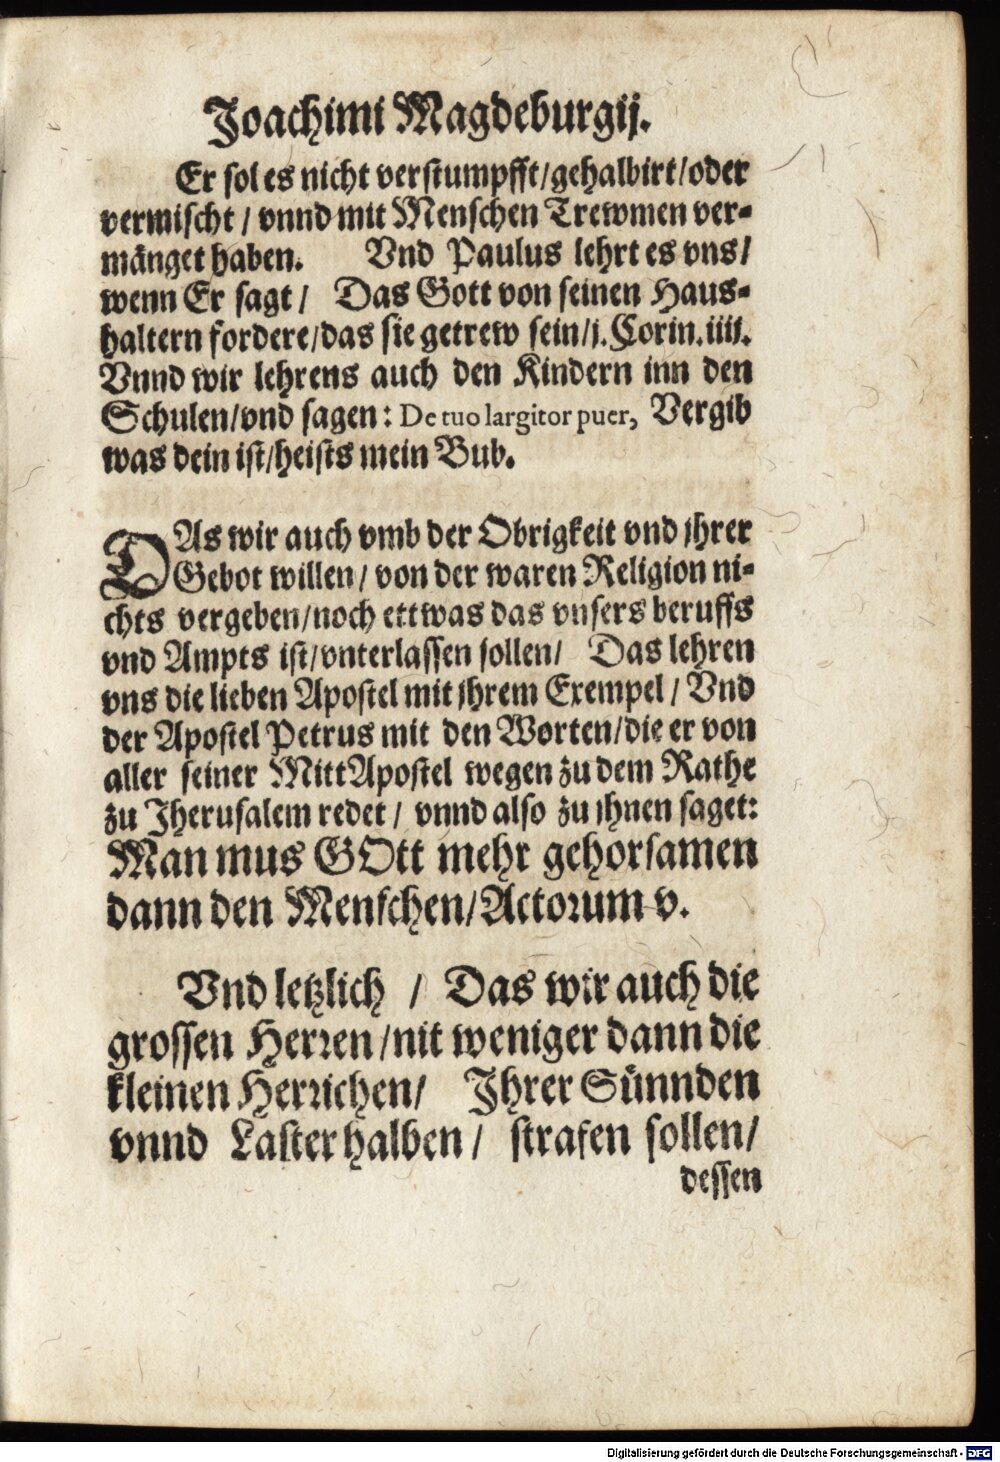 Joachimi Magdeburgij.
Er sol es nicht verstumpfft/gehalbirt/oder
vermischt / vnnd mit Menschen Trewmen ver-
mänget haben. Vnd Paulus lehrt es vns/
wenn Er sagt / Das Gott von seinen Haus-
haltern fordere/das sie getrew sein/j. Corin. iiij.
Vnnd wir lehrens auch den Kindern inn den
Schulen/vnd sagen: De tuo largitor puer, Vergib
was dein ist/heists mein Bub.
DAs wir auch vmb der Obrigkeit vnd jhrer
Gebot willen / von der waren Religion ni-
chts vergeben/noch ettwas das vnsers beruffs
vnd Ampts ist/vnterlassen sollen/ Das lehren
vns die lieben Apostel mit jhrem Exempel / Vnd
der Apostel Petrus mit den Worten/die er von
aller seiner MittApostel wegen zu dem Rathe
zu Jherusalem redet / vnnd also zu jhnen saget:
Man mus GOtt mehr gehorsamen
dann den Menschen/Actorum v.
Vnd letzlich / Das wir auch die
grossen Herren/nit weniger dann die
kleinen Herrichen/ Jhrer Sünnden
vnnd Laster halben / strafen sollen/
dessen
Digitalisierung gefördert durch die Deutsche Forschungsgemeinschaft - DFG